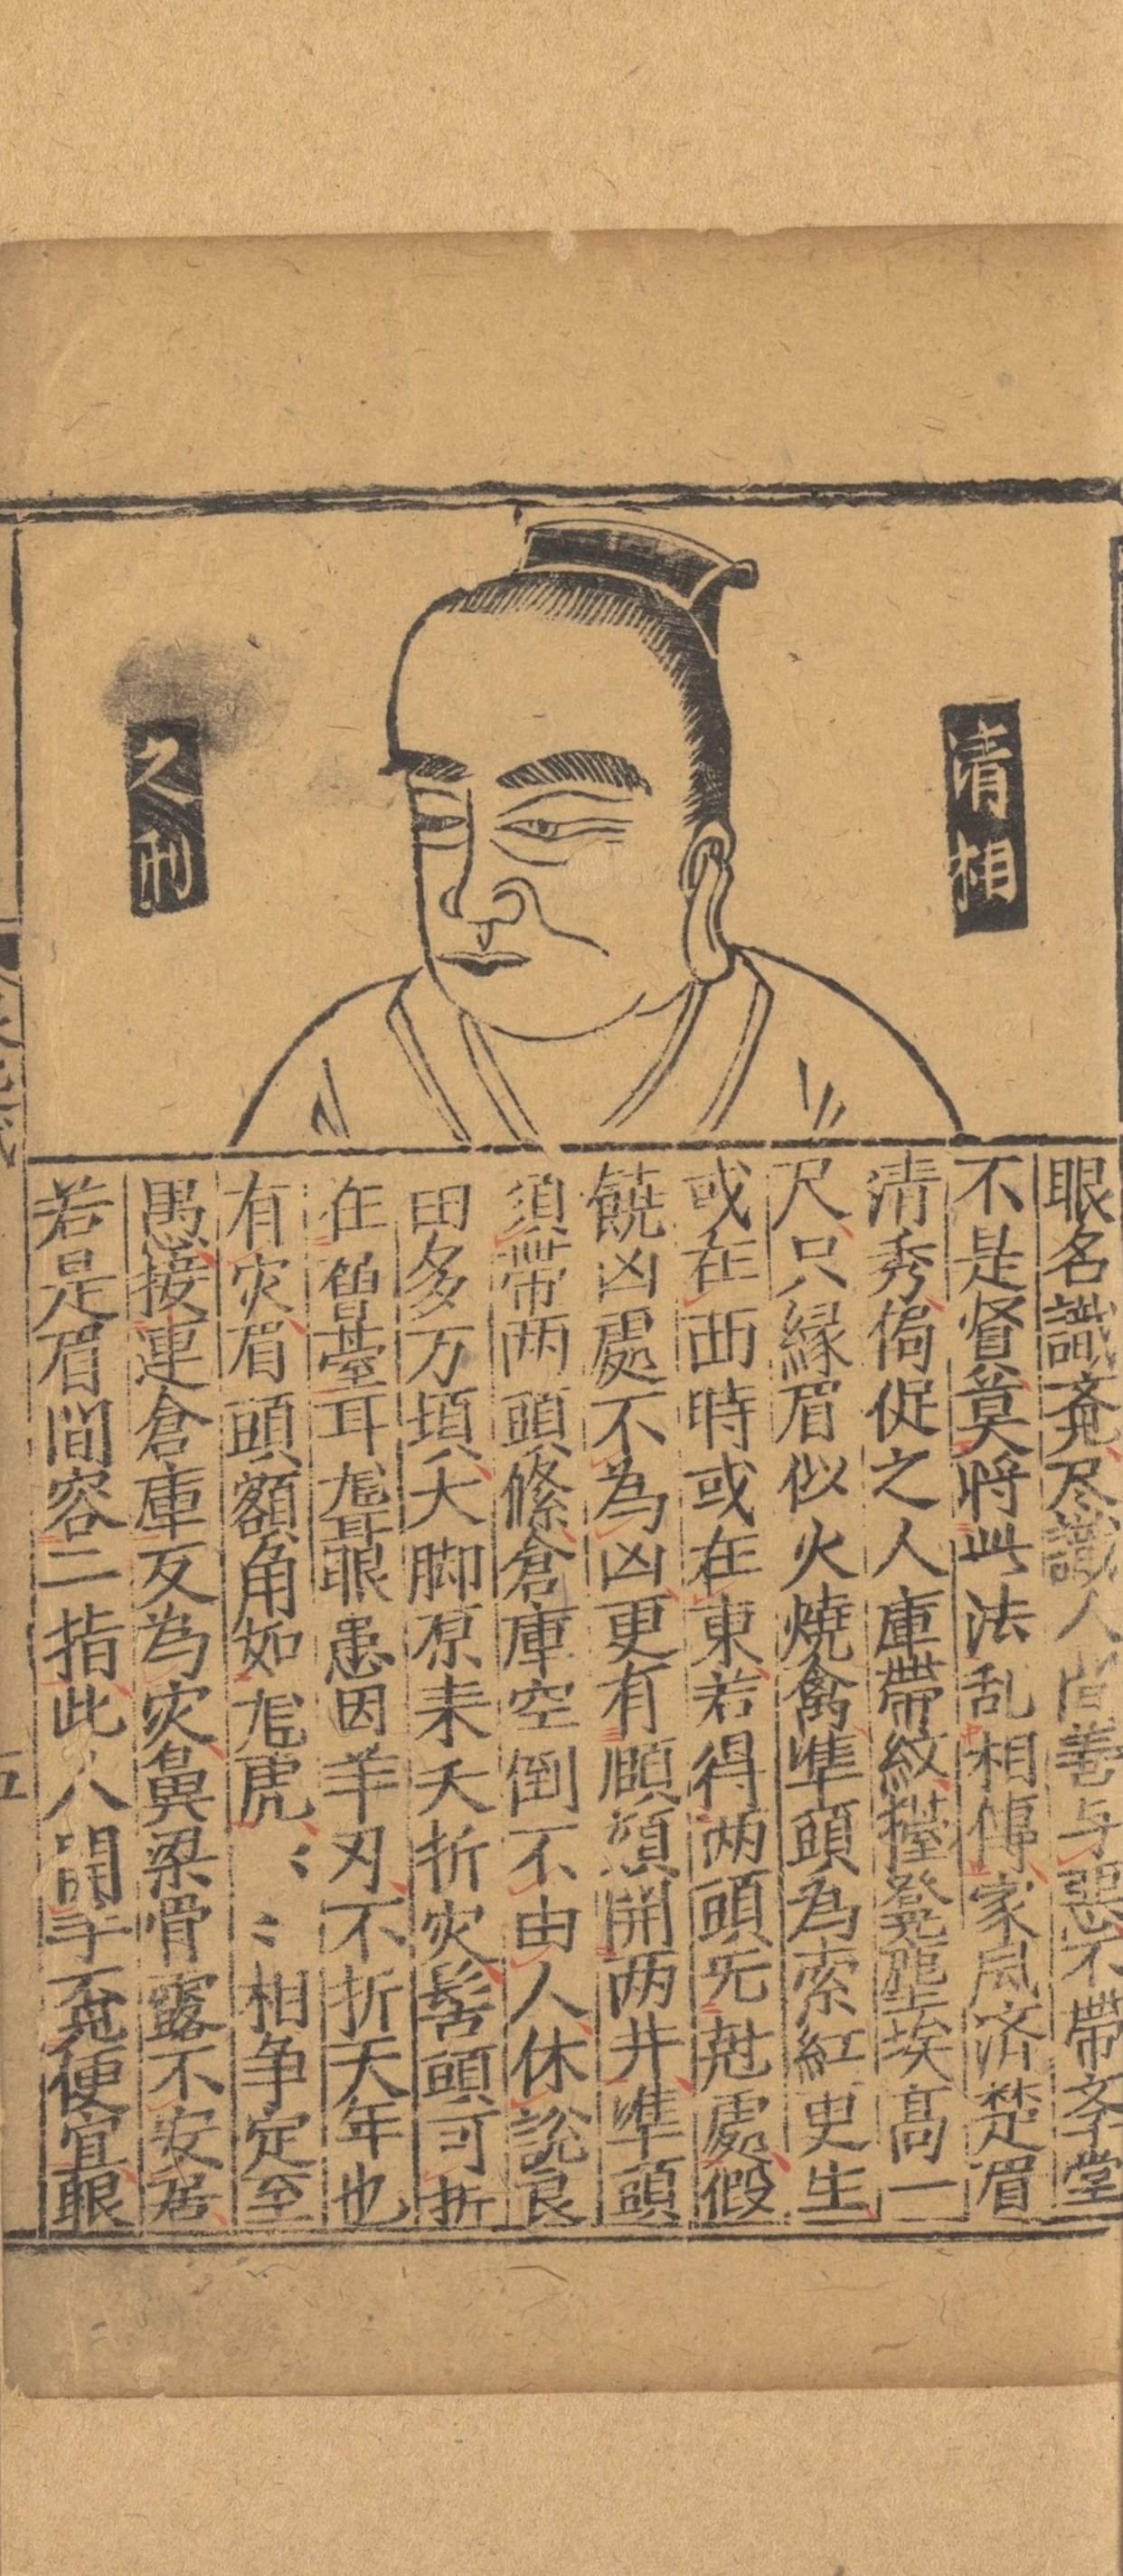 清相
之刑
眼名識斎尽識人間善与惡不帶斎堂
不是賢莫将此法乱相傳家風济楚眉
清秀傷促之人庫帶紋擡凳聖埃高一
尺只縁眉似火燒禽準頭為索紅吏生
或在西時或在東若得两頭旡尅處假
饒凶處不為凶更有願須開两井準頭
須帶两頭絛倉庫空倒不由人休說良
田多万頃夭脚原来夭折灾髻頭可折
在曾臺耳尨聶眼患因羊刃不折天年也
有灾眉頭額角如尨虎〻〻相争定至
愚接連倉庫反為灾鼻梁骨露不安居
若是眉間容二指此人開手便宜眼
五